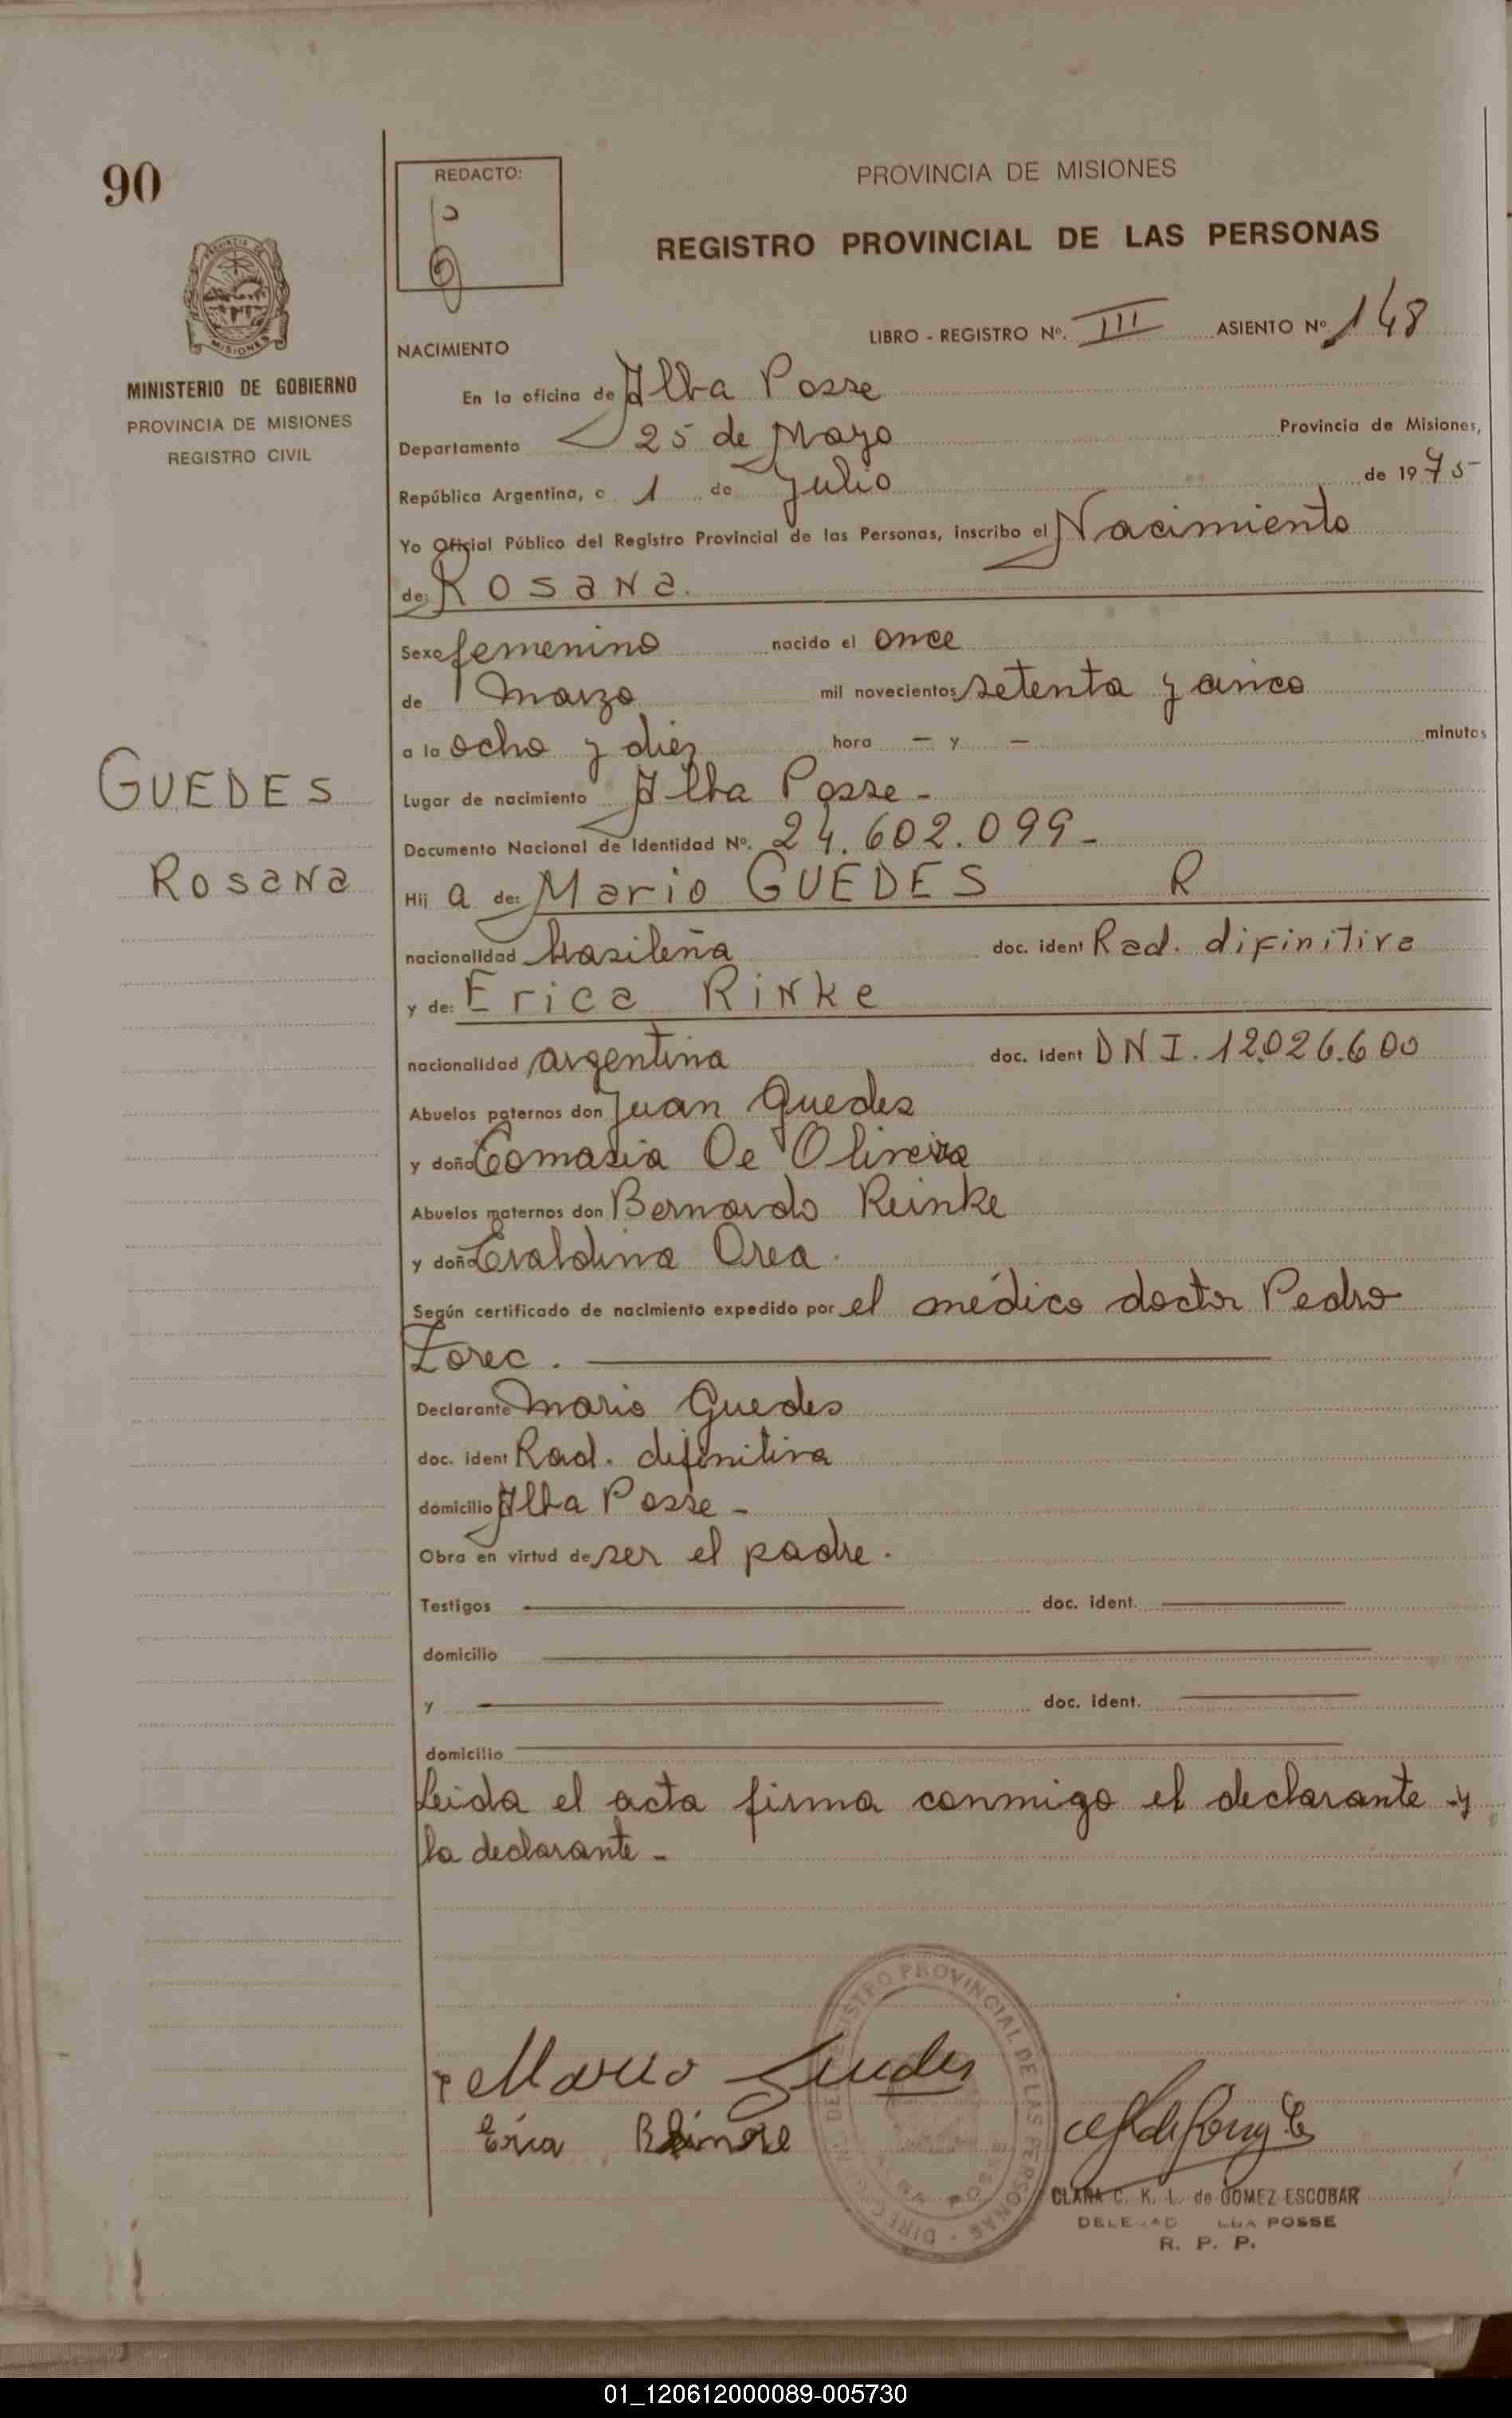 90
PROVINCIA DE MISIONES
MINISTERIO DE GOBIERNO
PROVINCIA DE MISIONES
REGISTRO CIVIL
GUEDES
Rosana
REDACTO:
PROVINCIA DE MISIONES
REGISTRO PROVINCIAL DE LAS PERSONAS
LIBRO - REGISTRO Nº. III ASIENTO Nº 148
NACIMIENTO
En la oficina de Alba Posse
Departamento 25 de Mayo Provincia de Misiones,
República Argentina, a 1 de Julio de 1975
Yo Oficial Público del Registro Provincial de las Personas, inscribo el Nacimiento
de: Rosana.
Sexo femenino nacido el once
de marzo mil novecientos setenta y cinco
a la ocho y diez hora - y - minutos
Lugar de nacimiento Alba Posse -
Documento Nacional de Identidad Nº. 24.602.099-
Hij a de: Mario GUEDES R
nacionalidad brasileña doc. ident Rad. difinitiva
y de: Erica Rinke
nacionalidad argentina doc. ident DNI. 12.026.600
Abuelos paternos don Juan Guedes
y doña Tomasia De Oliveira
Abuelos maternos don Bernardo Reinke
y doña Evaldina Orea.
Según certificado de nacimiento expedido por el médico doctor Pedro
Zorec.
Declarante Mario Guedes
doc. ident Rad. difinitiva
domicilio Alba Posse -
Obra en virtud de ser el padre.
Testigos doc. ident.
domicilio
y doc. ident.
domicilio
Leida el acta firma conmigo el declarante y
la declarante -
Mario Guedes
Erica
DIRECCION DEL REGISTRO PROVINCIAL DE LAS PERSONAS
CLARA C. K. L. de GOMEZ ESCOBAR
POSSE
R. P. P.
01_120612000089-005730